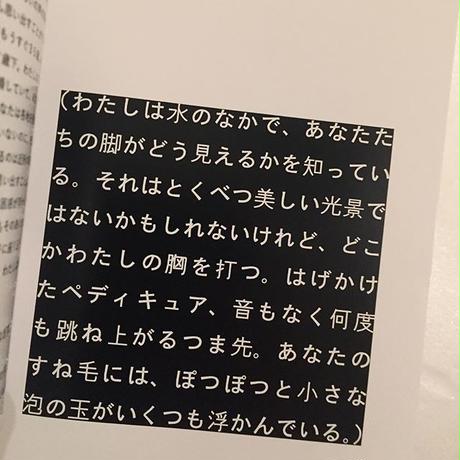 （わたしは水のなかで、あなたた
ちの脚がどう見えるかを知ってい
る。それはとくべつ美しい光景で
はないかもしれないけれど、どこ
かわたしの胸を打つ。はげかけ
たペディキュア、音もなく何度
も跳ね上がるつま先。あなたの
すね毛には、ぽつぽつと小さな
泡の玉がいくつも浮かんでいる。）